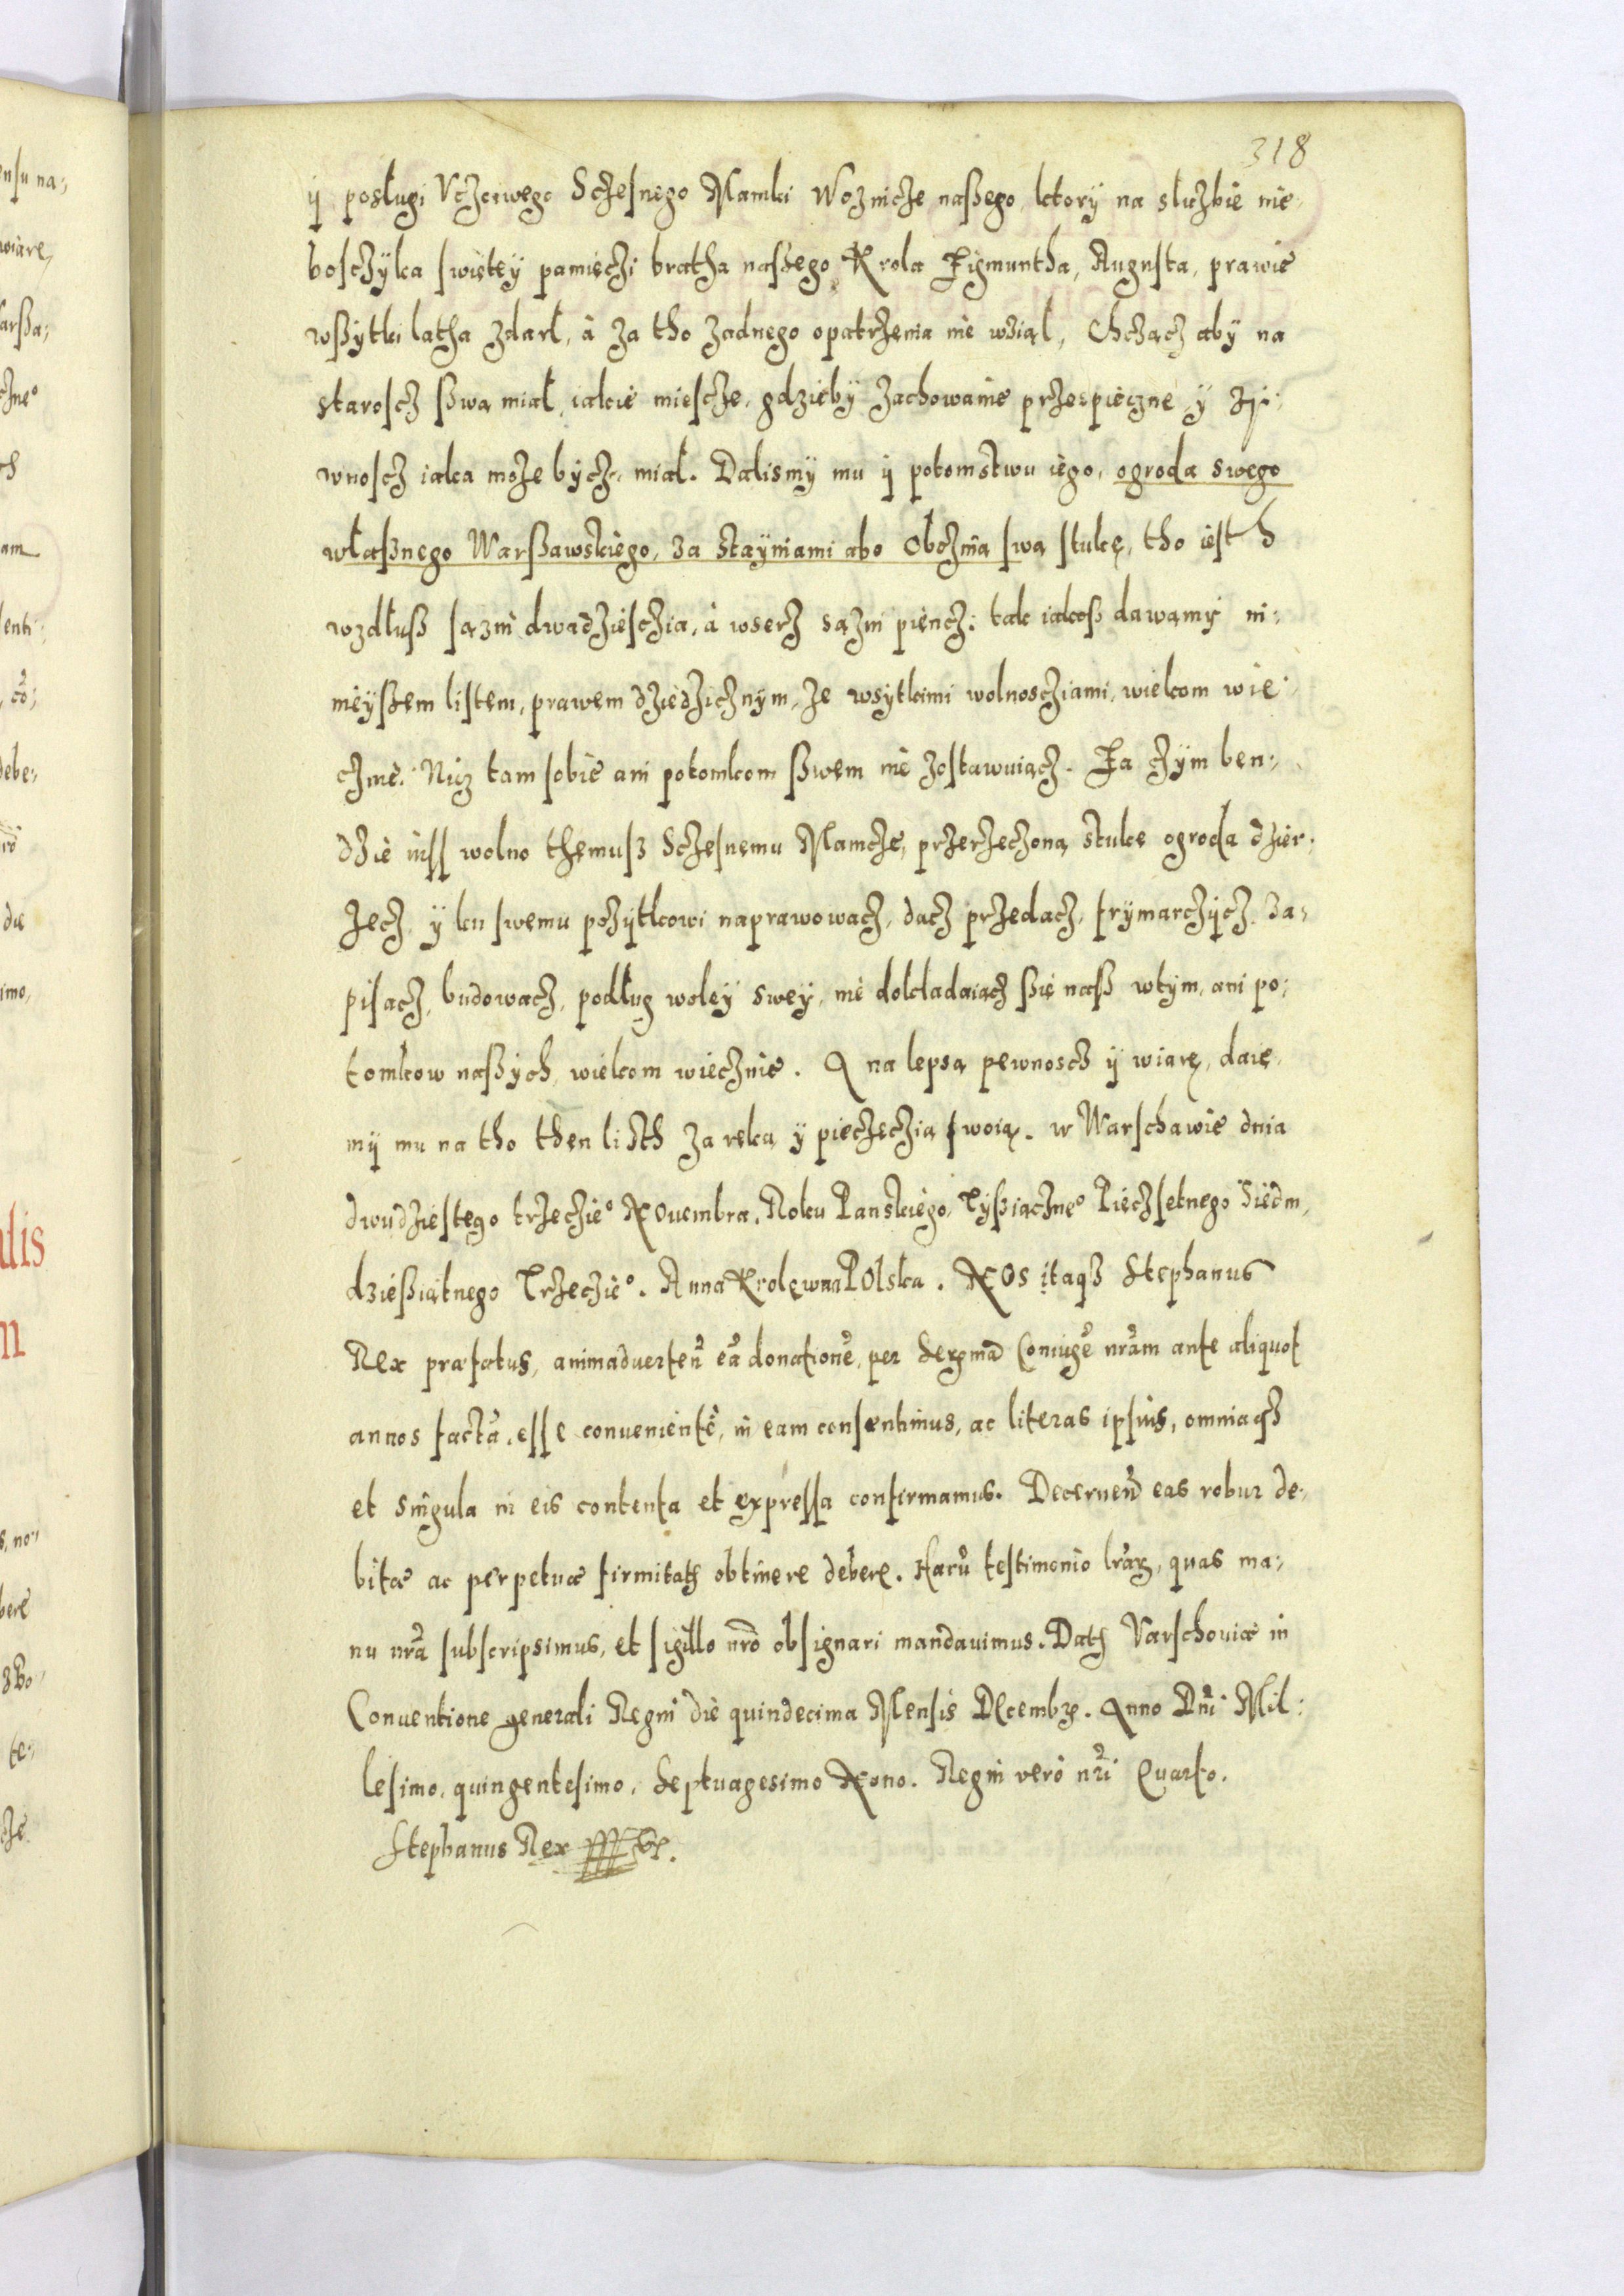 318
ÿ posługi Vczciwego Sczęsnego Mamki Woznicze naßego, ktory na służbie nie-
bosczÿka swiętey pamięczi bratha naszego Krola Zigmuntha, Augusta, prawie
wßytki latha zdarł, à za tho zadnego opatrzenia nie wział, Chcząncz abÿ na
staroscz ßwą miał, iakie miescze, gdzieby zachowanie przespieczne ÿ ży-
wnoscz iaka może bycz, miał. Dalismÿ mu ÿ potomstwu iego, ogroda swego
właßnego Warßawskiego, za staÿniami abo obczina swą stukę, tho iesth
wzdłuß sązni dwadziesczia, à wserz sązni pięncz: tak iakoß dawamÿ ni-
nieÿßem listem, prawem dziedzicznÿm, ze wsytkimi wolnosciami, wiekom wie-
cznie. Nicz tam sobie ani potomkom ßwem nie zostawuiącz. Za czÿm ben-
dzie insz wolno themusz Sczęsnemu Mamcze, przerzeczoną stukę ogroda dzier-
zecz, ÿ ku swemu pożÿtkowi naprawowacz, dacz przedacz, frÿmarczÿcz, za-
pisacz, budowacz, podług woleÿ sweÿ, nie dokladaiącz ßię naß wtÿm, ani po-
tomkow naßÿch, wiekom wiecznie. A na lepsą pewnoscz ÿ wiarę, daie-
mÿ mu na tho then listh za ręką ÿ pieczęczią swoią. w Warschawie dnia
dwudziestego trzecie° Nouembra. Roku Panskiego, Tÿßiączne° Pięczsetnego Siedm-
dzießiątnego Trzecie°. Anna Krolewna Polska. Nos itaqz Stephanus
Rex præfatus, animaduerten̄ eā donationē, per Sermā Coniugē nrām ante aliquot
annos factā, esse convenientē, in eam consentimus, ac literas ipsius, omniaqz
et singula in eis contenta et expressa confirmamus. Decernen̄ eas robur de-
bitæ ac perpetuæ firmitatis obtinere debere. Harū testimonio lrāꝝ, quas ma-
nu nrā subscripsimus, et sigillo nrō obsignari mandavimus. Datꝭ Varschoviæ in
Conventione generali Regni die quindecima Mensis Decembꝝ. Anno Dn̄i Mil-
lesimo, quingentesimo, Septuagesimo Nono. Regni verò nr̄i Quarto.
Stephanus Rex